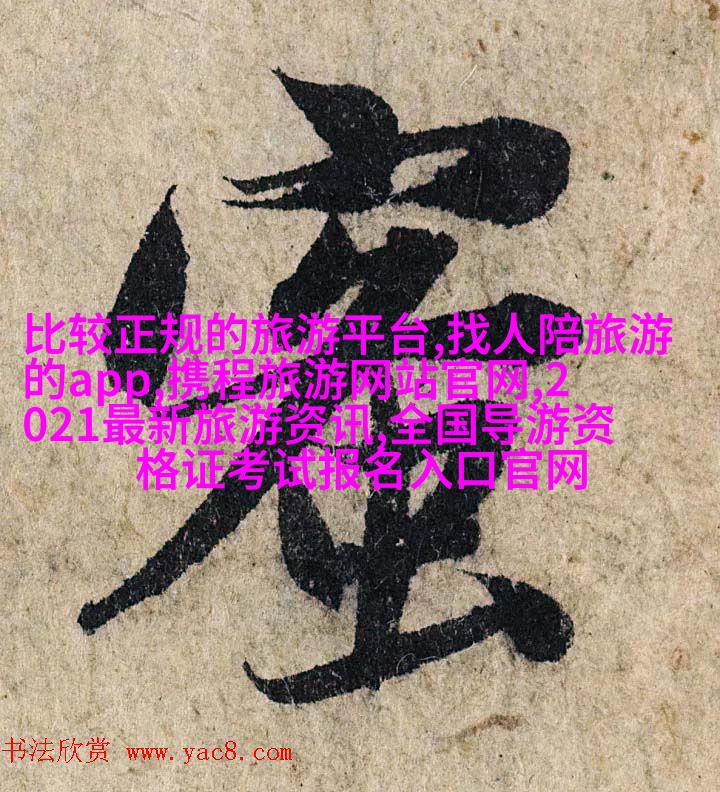 比较正规的旅游平台,找人陪旅游
的app,携程旅游网站官网,2
021最新旅游资讯,全国导游资
格证考试报名入口官网
书法欣赏 www.yac8.com